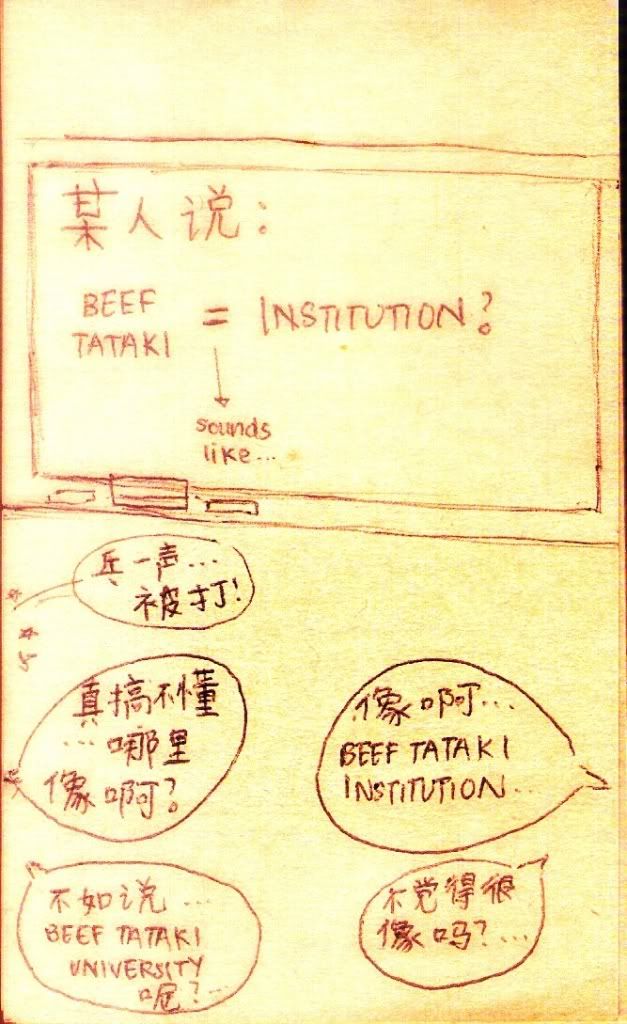 某人说:
BEEF TATAKI = INSTITUTION?
sounds
like...
乒一声...
被打!
真搞不懂
...哪里
像啊?
像啊...
BEEF TATAKI
INSTITUTION...
不如说...
BEEF TATAKI
UNIVERSITY
呢?...
不觉得很
像吗?...